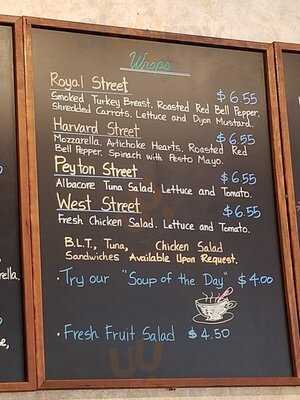 Wraps
Royal Street $6.55
Smoked Turkey Breast, Roasted Red Bell Pepper,
Shredded Carrots, Lettuce and Dijon Mustard.
Harvard Street $6.55
Mozzarella, Artichoke Hearts, Roasted Red
Bell Pepper, Spinach with Pesto Mayo.
Peyton Street $6.55
Albacore Tuna Salad, Lettuce and Tomato.
West Street $6.55
Fresh Chicken Salad, Lettuce and Tomato.
B.L.T., Tuna, Chicken Salad
Sandwiches Available Upon Request.
· Try our "Soup of the Day" $4.00
· Fresh Fruit Salad $4.50